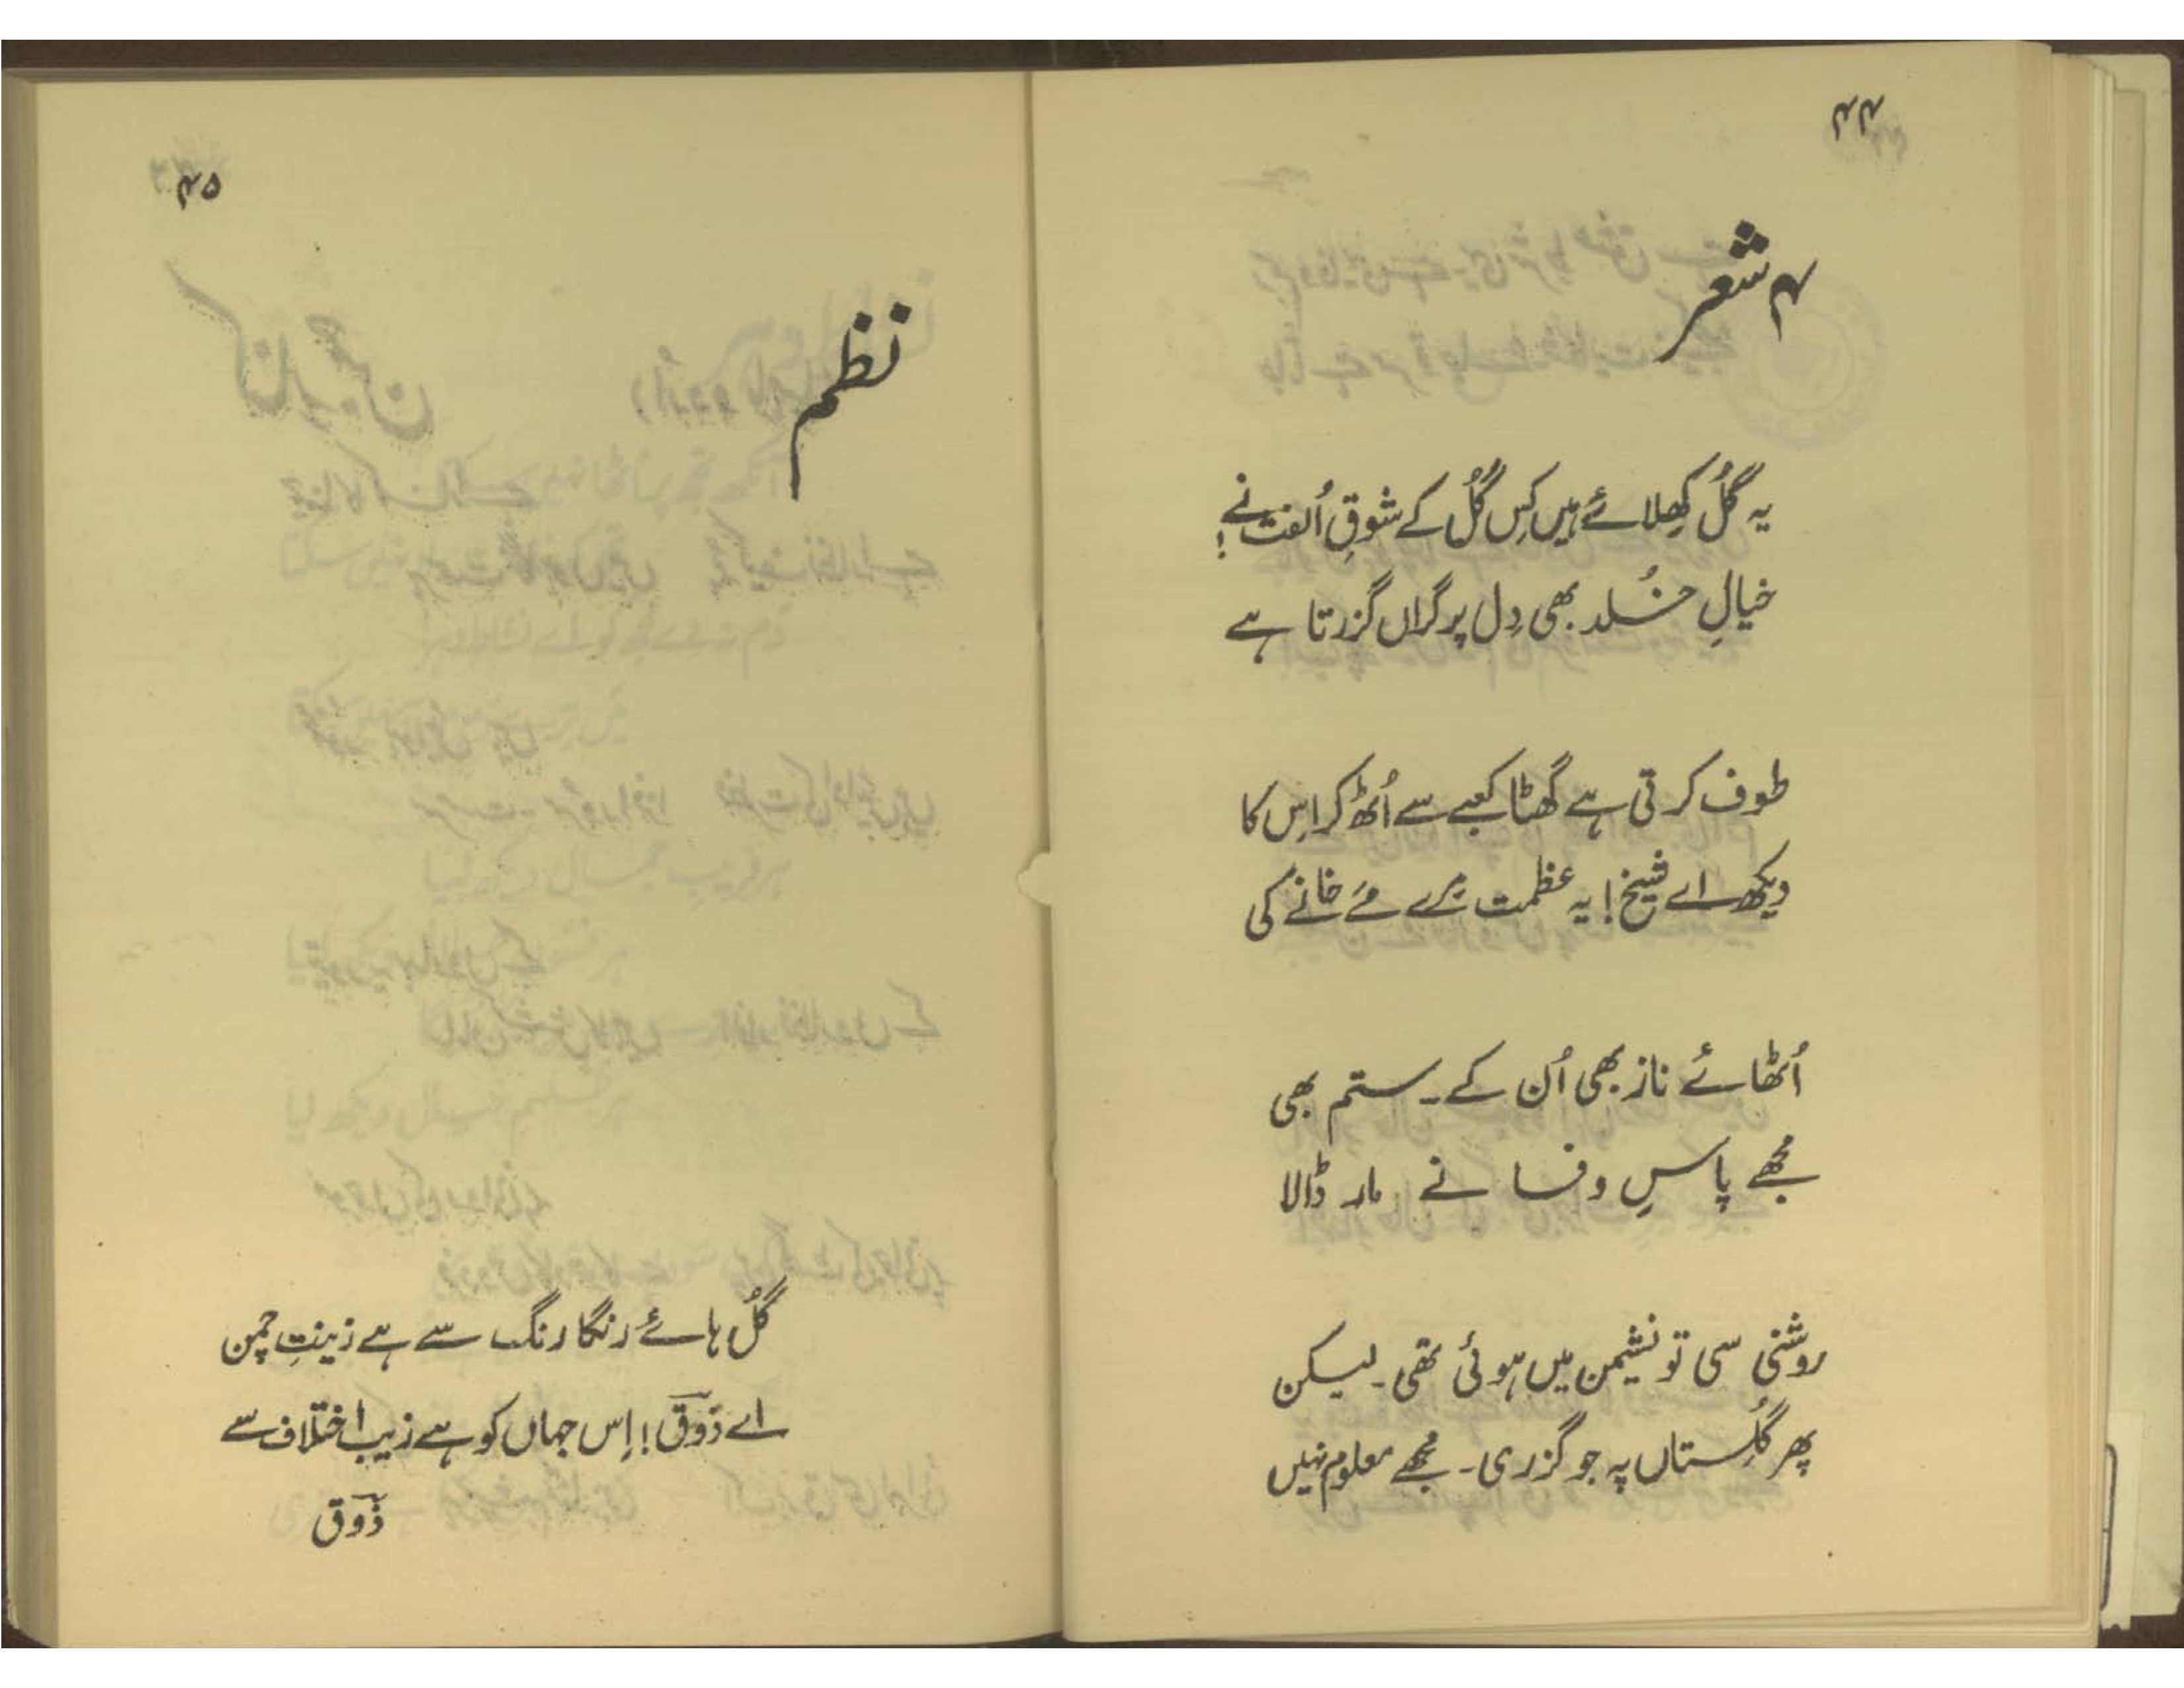 ۴۴
۴ شعر
یہ گُل کھِلائے ہیں کِس گُل کے شوقِ اُلفت نے!
خیالِ خُلد بھی دِل پر گراں گزرتا ہے
طوف کرتی ہے گھٹا کعبے سے اُٹھ کر اِس کا
دیکھ اے شیخ! یہ عظمت مِرے مَے خانے کی
اُٹھائے ناز بھی اُن کے۔ ستم بھی
مُجھے پاسِ وفا نے مار ڈالا
روشنی سی تو نشیمن میں ہوئی تھی۔ لیکن
پھر گُلستاں پہ جو گزری۔ مُجھے معلوم نہیں
۴۵
نظم
گُل ہائے رنگا رنگ سے ہے زینتِ چمن
اے ذوقؔ! اِس جہاں کو ہے زیب اختلاف سے
ذوقؔ